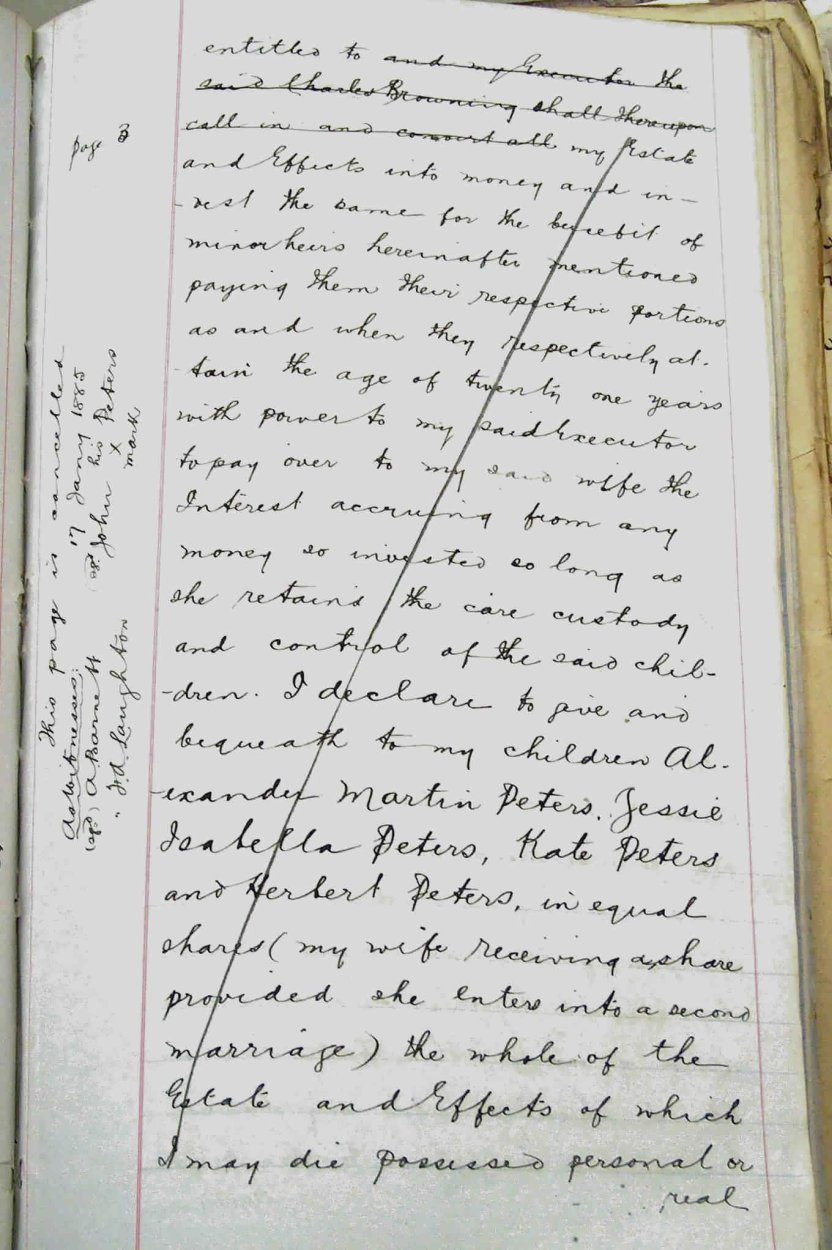 page 3
entitled to and my Executor the
said Charles Browning shall thereupon
call in and convert all my Estate
and Effects into money and in-
-vest the same for the benefit of
minor heirs hereinafter mentioned
paying them their respective portions
as and when they respectively at-
-tain the age of twenty one years
with power to my said Executor
to pay over to my said wife the
Interest accruing from any
money so invested so long as
she retains the care custody
and control of the said chil-
-dren. I declare to give and
bequeath to my children Al-
-exander Martin Peters, Jessie
Isabella Peters, Kate Peters
and Herbert Peters, in equal
shares (my wife receiving a share
provided she enters into a second
marriage) the whole of the
Estate and Effects of which
I may die possessed personal or
real
This page is cancelled
17 Jany 1885
As witnesses
his
(sgd) John X Peters
mark
(sgd) A Barnett
" J.A. Laughton